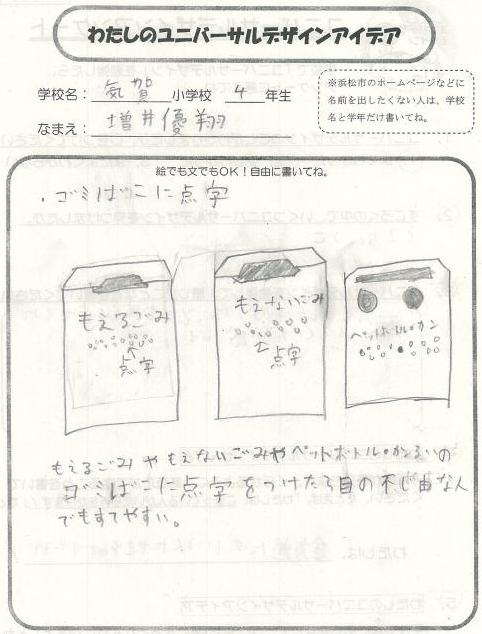 わたしのユニバーサルデザインアイデア
学校名：気賀小学校 4年生
なまえ：増井優翔
※浜松市のホームページなどに
名前を出したくない人は、学校
名と学年だけ書いてね。
絵でも文でもOK！自由に書いてね。
・ゴミばこに点字
もえるごみ
点字
もえないごみ
点字
ペットボトル・カン
もえるごみやもえないごみやペットボトル・かんるいの
ゴミばこに点字をつけたら目の不じ由な人
でもすてやすい。